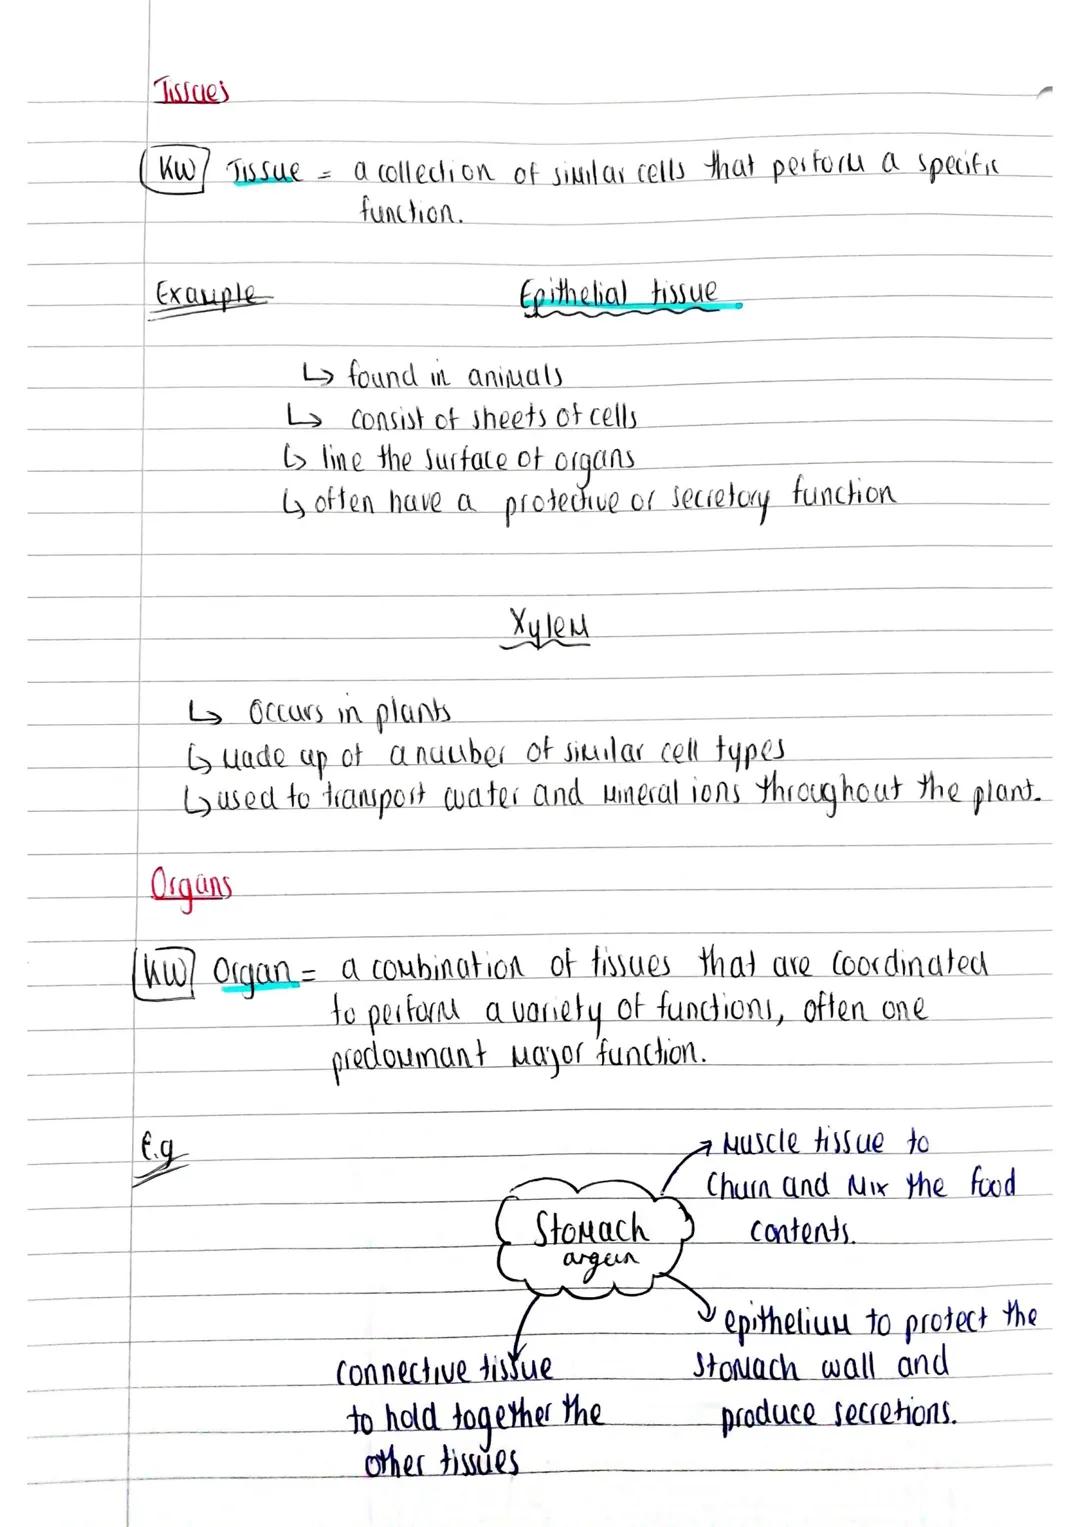 Tissues
KW Tissue = a collection of similar cells that perform a specific
function.
Example
Epithelial tissue
↳ found in animals
↳ consist of sheets of cells
↳ line the surface of organs
↳ often have a protective or secretory function
Xylem
↳ occurs in plants
↳ made up of a number of similar cell types
↳ used to transport water and mineral ions throughout the plant.
Organs
KW Organ = a combination of tissues that are coordinated
to perform a variety of functions, often one
predominant major function.
E.g
Muscle tissue to
churn and mix the food
contents.
Stomach
organ
epithelium to protect the
stomach wall and
produce secretions.
connective tissue
to hold together the
other tissues